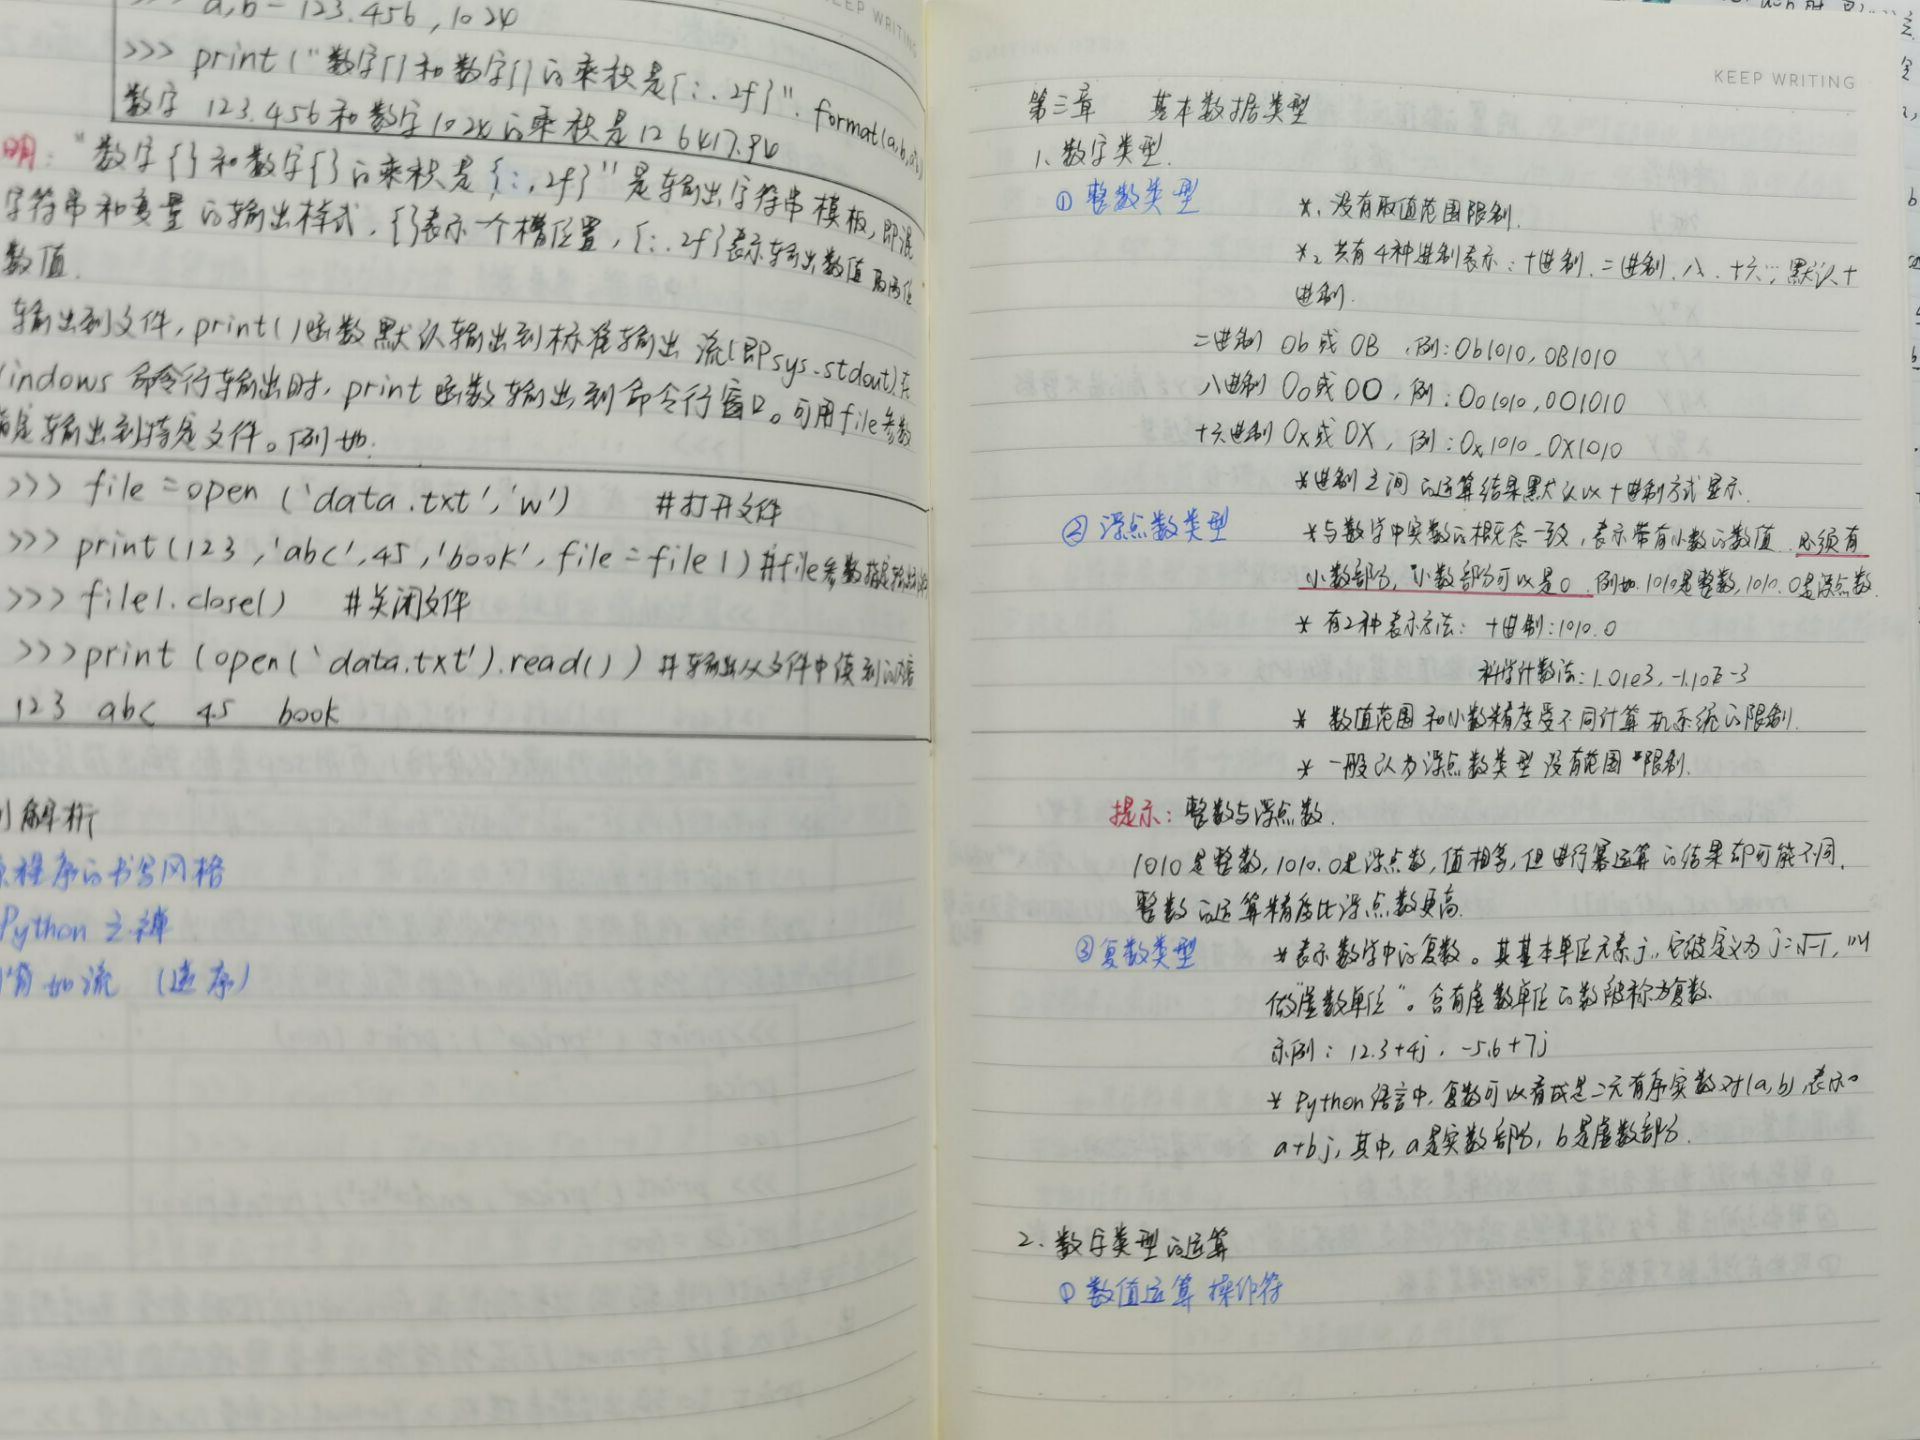 a,b = 123.456,1024
KEEP WRITING
>>> print("数字{}和数字{}的乘积是{:.2f}".format(a,b,a*b))
数字 123.456和数字1024的乘积是126417.94
明: "数字{}和数字{}的乘积是{:.2f}"是输出字符串模板,即混
字符串和变量的输出样式,{}表示一个槽位置,{:.2f}表示输出数值取两位
数值.
输出到文件,print()函数默认输出到标准输出流(即sys.stdout)在
indows 命令行输出时,print函数输出到命令行窗口。可用file参数
指定输出到特定文件。例如.
>>> file =open ('data.txt','w') #打开文件
>>> print(123,'abc',45,'book',file = file 1) #file参数指定输出
>>> file1.close() #关闭文件
>>> print (open('data.txt').read()) #输出从文件中读到的内容
123 abc 45 book
解析
程序的书写风格
Python 之禅
如流 (递序)
KEEP WRITING
第三章 基本数据类型
1、数字类型.
① 整数类型 *1 没有取值范围限制.
*2 共有4种进制表示:十进制.二进制.八.十六;默认十
进制.
二进制 0b或0B ,例:0b1010,0B1010
八进制 0o或0O,例:0o1010,0O1010
十六进制 0x或0X,例:0x1010.0X1010
*进制之间的运算结果默认以十进制方式显示.
② 浮点数类型 *与数学中实数的概念一致,表示带有小数的数值.必须有
小数部分,小数部分可以是0.例如.1010是整数,1010.0是浮点数.
* 有2种表示方法: 十进制:1010.0
科学计数法:1.01e3,-1.10E-3
* 数值范围和小数精度受不同计算机系统的限制.
* 一般认为浮点数类型没有范围限制.
提示:整数与浮点数.
1010是整数,1010.0是浮点数,值相等,但进行幂运算的结果却可能不同.
整数的运算精度比浮点数更高.
③复数类型 *表示数学中的复数。其基本单位元素j,它被定义为j=√-1,叫
做"虚数单位"。含有虚数单位的数被称为复数.
示例:12.3+4j,-5.6+7j
* Python语言中,复数可以看成是二元有序实数对(a,b),表示
a+bj,其中,a是实数部分,b是虚数部分.
2.数字类型的运算
① 数值运算操作符